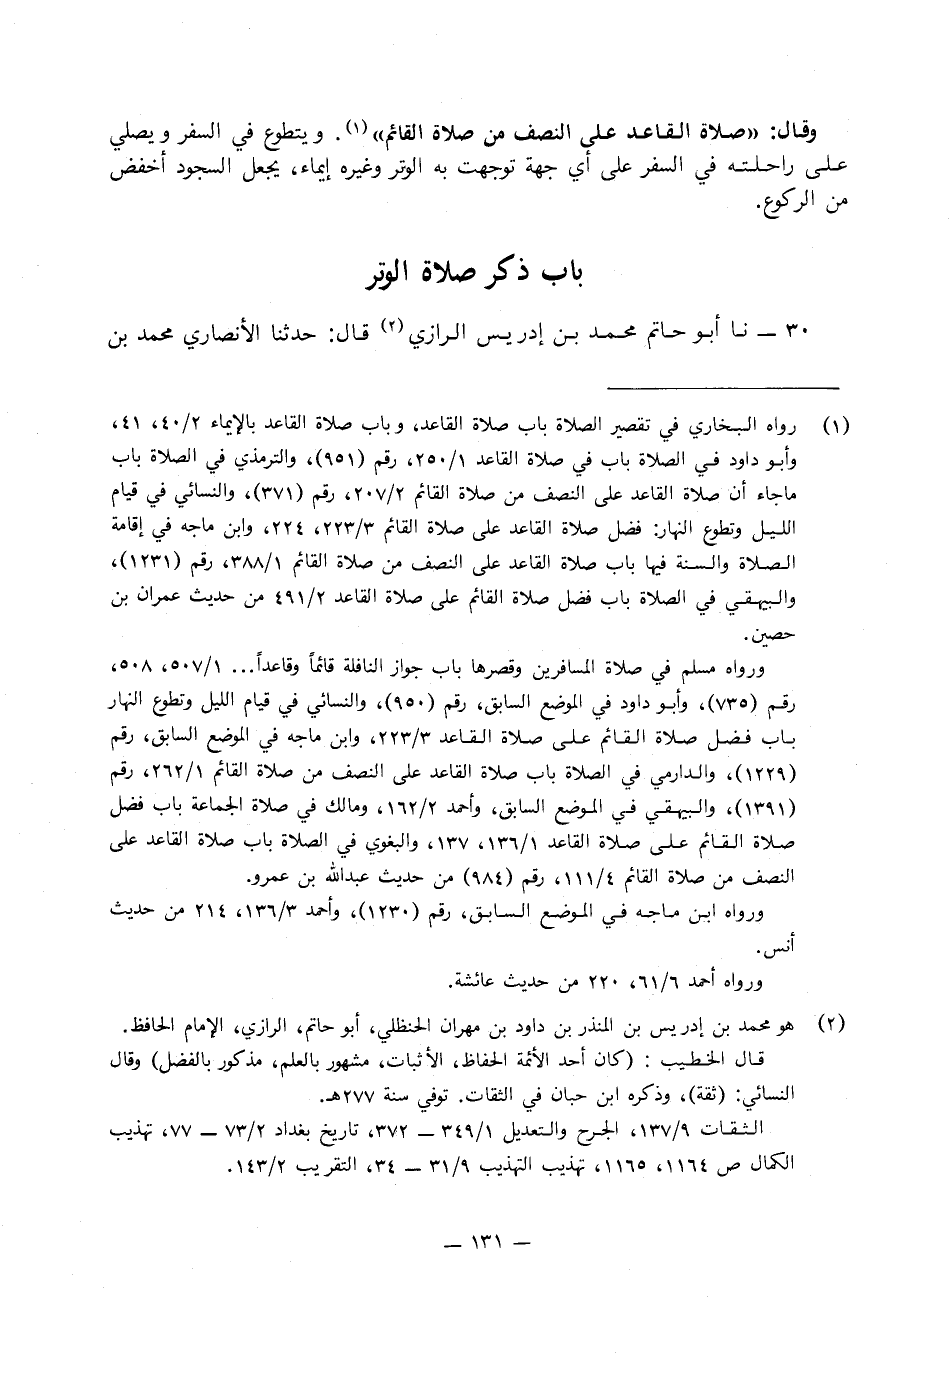 وقال: «صلاة القاعد على النصف من صلاة القائم»(١). ويتطوع في السفر ويصلي
على راحلته في السفر على أي جهة توجهت به الوتر وغيره إيماء، يجعل السجود أخفض
من الركوع.
باب ذكر صلاة الوتر
٣٠ — نا أبو حاتم محمد بن إدريس الرازي(٢) قال: حدثنا الأنصاري محمد بن
(١) رواه البخاري في تقصير الصلاة باب صلاة القاعد، وباب صلاة القاعد بالإيماء ٤٠/٢، ٤١،
وأبو داود في الصلاة باب في صلاة القاعد ٢٥٠/١، رقم (٩٥١)، والترمذي في الصلاة باب
ماجاء أن صلاة القاعد على النصف من صلاة القائم ٢٠٧/٢، رقم (٣٧١)، والنسائي في قيام
الليل وتطوع النهار: فضل صلاة القاعد على صلاة القائم ٢٢٣/٣، ٢٢٤، وابن ماجه في إقامة
الصلاة والسنة فيها باب صلاة القاعد على النصف من صلاة القائم ٣٨٨/١، رقم (١٢٣١)،
والبيهقي في الصلاة باب فضل صلاة القائم على صلاة القاعد ٤٩١/٢ من حديث عمران بن
حصين.
ورواه مسلم في صلاة المسافرين وقصرها باب جواز النافلة قائماً وقاعداً... ٥٠٧/١، ٥٠٨،
رقم (٧٣٥)، وأبو داود في الموضع السابق، رقم (٩٥٠)، والنسائي في قيام الليل وتطوع النهار
باب فضل صلاة القائم على صلاة القاعد ٢٢٣/٣، وابن ماجه في الموضع السابق، رقم
(١٢٢٩)، والدارمي في الصلاة باب صلاة القاعد على النصف من صلاة القائم ٢٦٢/١، رقم
(١٣٩١)، والبيهقي في الموضع السابق، وأحمد ١٦٢/٢، ومالك في صلاة الجماعة باب فضل
صلاة القائم على صلاة القاعد ١٣٦/١، ١٣٧، والبغوي في الصلاة باب صلاة القاعد على
النصف من صلاة القائم ١١١/٤، رقم (٩٨٤) من حديث عبدالله بن عمرو.
ورواه ابن ماجه في الموضع السابق، رقم (١٢٣٠)، وأحمد ١٣٦/٣، ٢١٤ من حديث
أنس.
ورواه أحمد ٦١/٦، ٢٢٠ من حديث عائشة.
(٢) هو محمد بن إدريس بن المنذر بن داود بن مهران الحنظلي، أبو حاتم، الرازي، الإمام الحافظ.
قال الخطيب : (كان أحد الأئمة الحفاظ، الأثبات، مشهور بالعلم، مذكور بالفضل) وقال
النسائي: (ثقة)، وذكره ابن حبان في الثقات. توفي سنة ٢٧٧هـ.
الثقات ١٣٧/٩، الجرح والتعديل ٣٤٩/١ — ٣٧٢، تاريخ بغداد ٧٣/٢ — ٧٧، تهذيب
الكمال ص ١١٦٤، ١١٦٥، تهذيب التهذيب ٣١/٩ — ٣٤، التقريب ١٤٣/٢.
— ١٣١ —